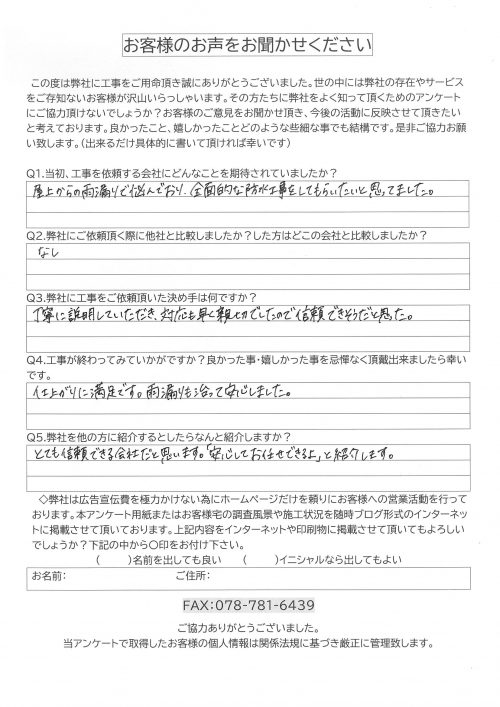 お客様のお声をお聞かせください
この度は弊社に工事をご用命頂き誠にありがとうございました。世の中には弊社の存在やサービス
をご存知ないお客様が沢山いらっしゃいます。その方たちに弊社をよく知って頂くためのアンケート
にご協力頂けないでしょうか？お客様のご意見をお聞かせ頂き、今後の活動に反映させて頂きたい
と考えております。良かったこと、嬉しかったことどのような些細な事でも結構です。是非ご協力お願
い致します。（出来るだけ具体的に書いて頂ければ幸いです）
Q1.当初、工事を依頼する会社にどんなことを期待されていましたか？
屋上からの雨漏りで悩んでおり、全面的な防水工事をしてもらいたいと思ってました。
Q2.弊社にご依頼頂く際に他社と比較しましたか？した方はどこの会社と比較しましたか？
なし
Q3.弊社に工事をご依頼頂いた決め手は何ですか？
丁寧に説明していただき、対応も早く親切でしたので信頼できそうだと思った。
Q4.工事が終わってみていかがですか？良かった事・嬉しかった事を忌憚なく頂戴出来ましたら幸い
です。
仕上がりに満足です。雨漏りも治って安心しました。
Q5.弊社を他の方に紹介するとしたらなんと紹介しますか？
とても信頼できる会社だと思います。「安心してお任せできるよ」と紹介します。
◇弊社は広告宣伝費を極力かけない為にホームページだけを頼りにお客様への営業活動を行って
おります。本アンケート用紙またはお客様宅の調査風景や施工状況を随時ブログ形式のインターネッ
トに掲載させて頂いております。上記内容をインターネットや印刷物に掲載させて頂いてもよろしい
でしょうか？下記の中から〇印をお付け下さい。
（　　）名前を出しても良い　（　　）イニシャルなら出してもよい
お名前：　ご住所：
FAX：078-781-6439
ご協力ありがとうございました。
当アンケートで取得したお客様の個人情報は関係法規に基づき厳正に管理致します。